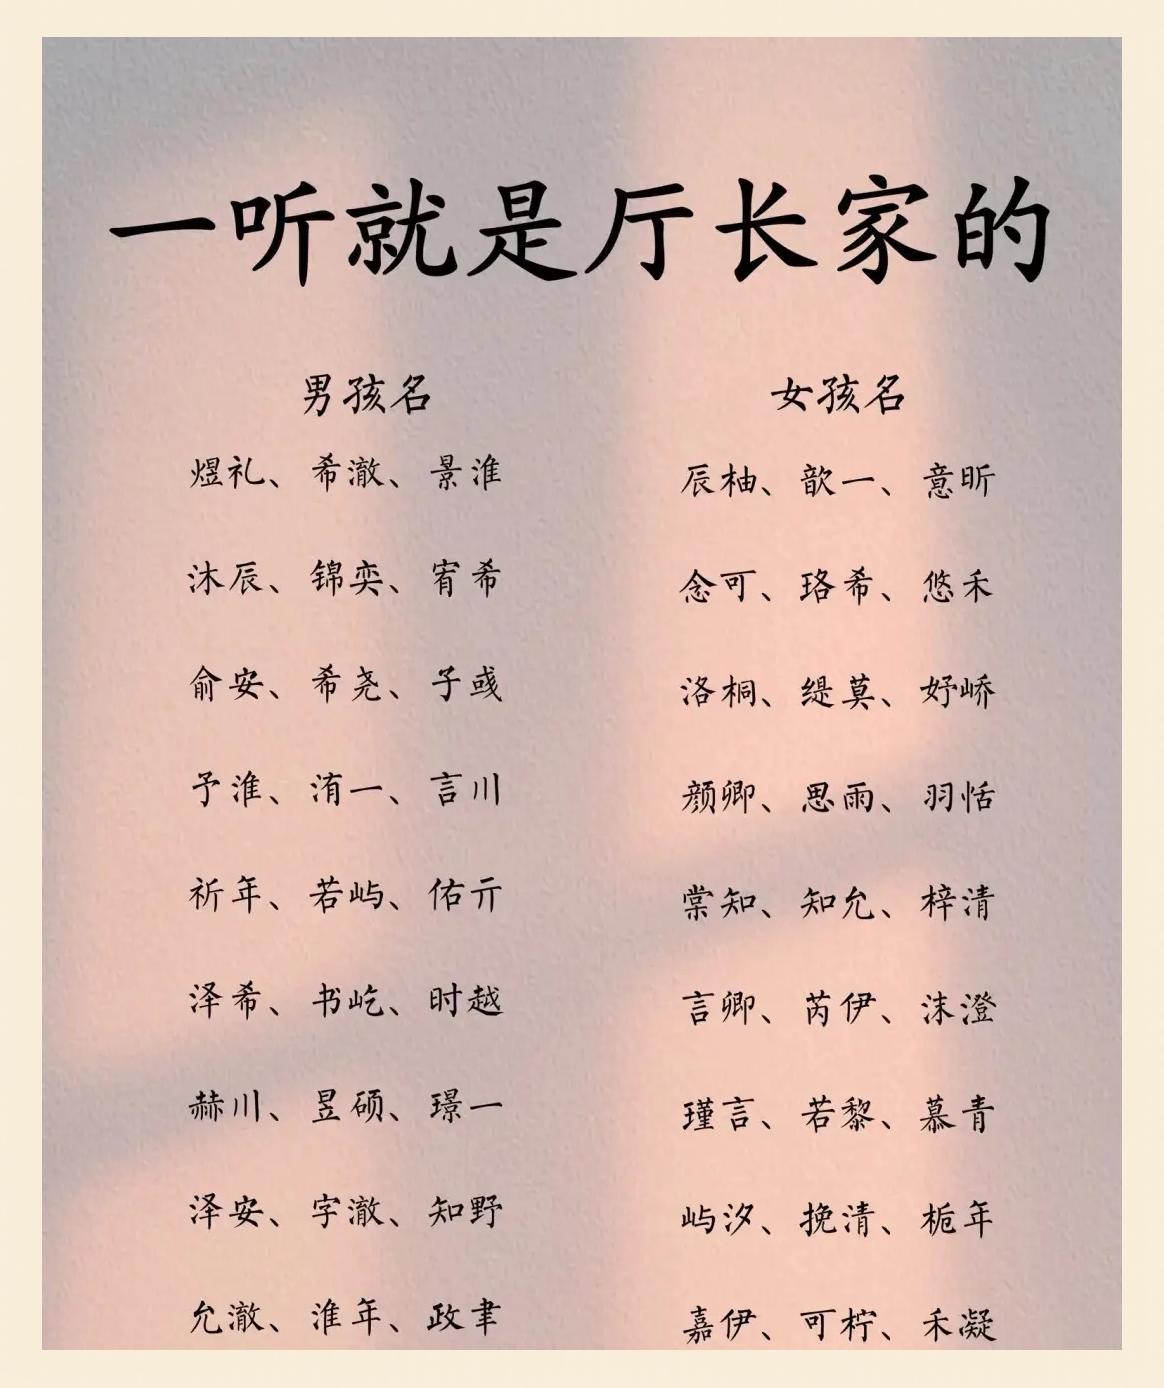 一听就是厅长家的
男孩名
煜礼、希澈、景淮
沐辰、锦奕、宥希
俞安、希尧、子彧
予淮、洧一、言川
祈年、若屿、佑亓
泽希、书屹、时越
赫川、昱硕、璟一
泽安、字澈、知野
允澈、淮年、政聿
女孩名
辰柚、歆一、意昕
念可、珞希、悠禾
洛桐、缇莫、妤峤
颜卿、思雨、羽恬
棠知、知允、梓清
言卿、芮伊、沫澄
瑾言、若黎、慕青
屿汐、挽清、栀年
嘉伊、可柠、禾凝